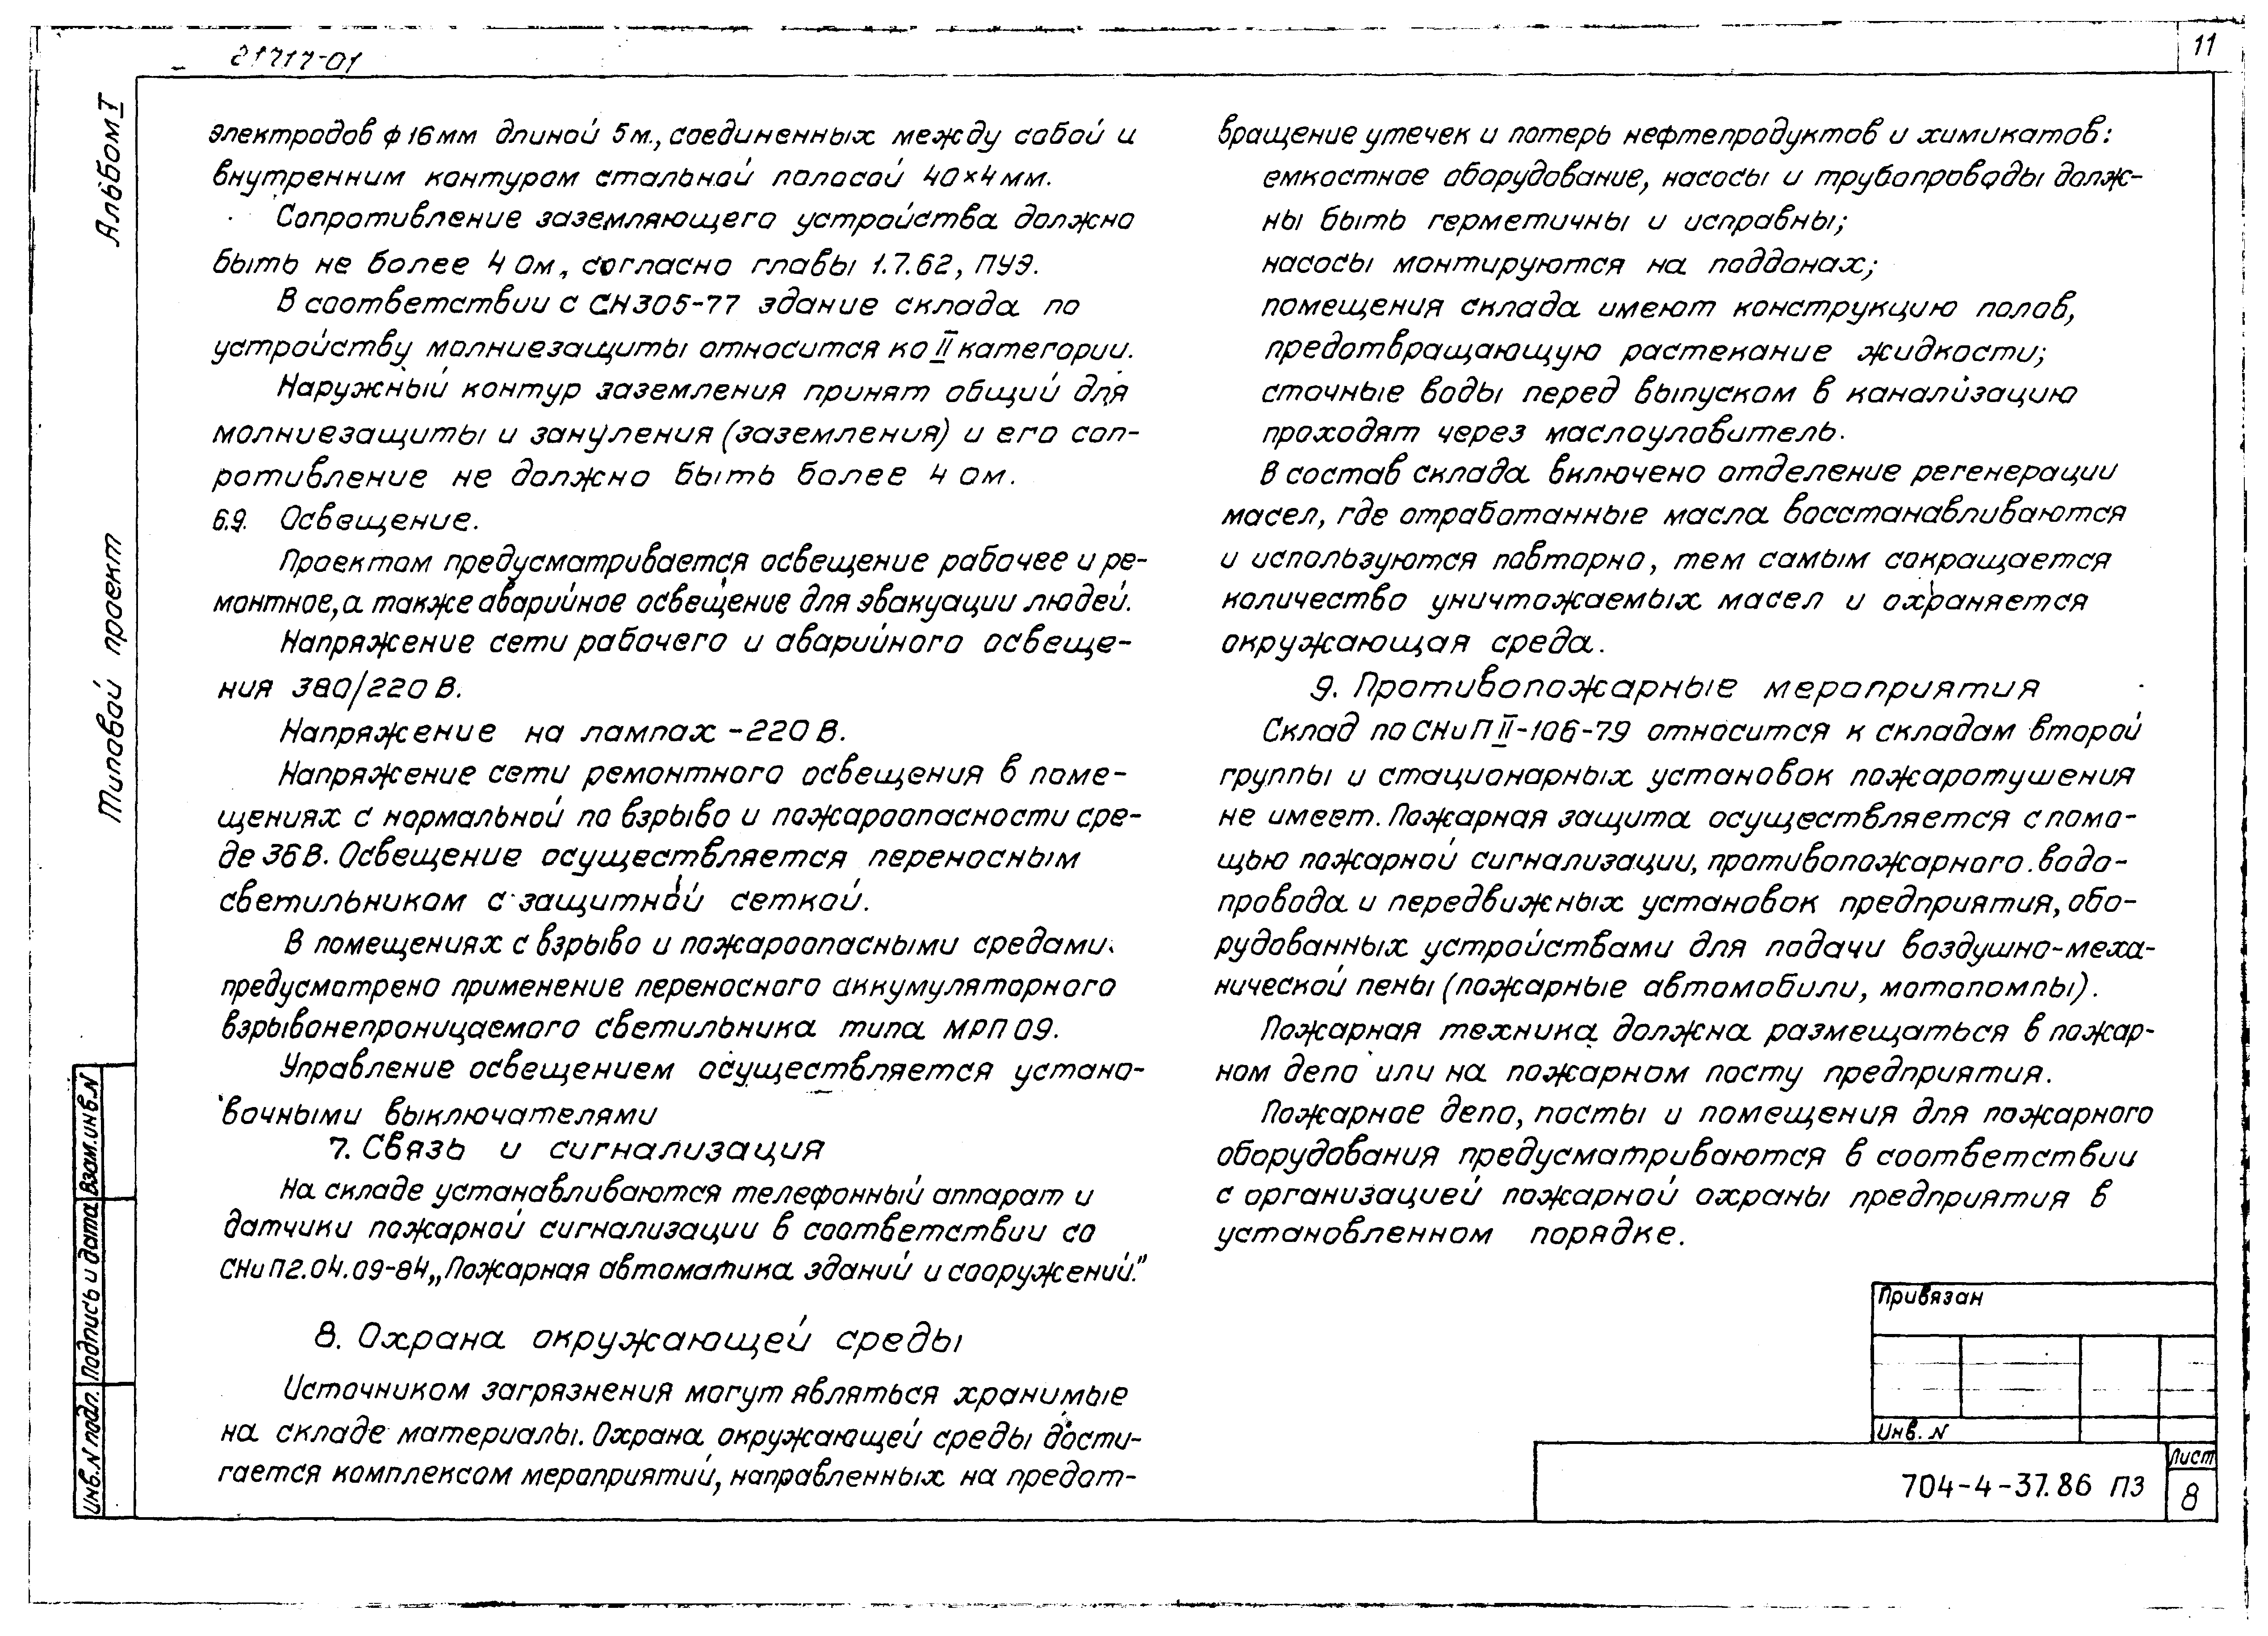 21717-01
11
Альбом I
Типовой проект
электродов ф 16 мм длиной 5 м., соединенных между собой и
внутренним контуром стальной полосой 40×4 мм.
Сопротивление заземляющего устройства должно
быть не более 4 Ом, согласно главы 1.7.62, ПУЭ.
В соответствии с СН 305-77 здание склада по
устройству молниезащиты относится ко II категории.
Наружный контур заземления принят общий для
молниезащиты и зануления (заземления) и его соп-
ротивление не должно быть более 4 ом.
6.9. Освещение.
Проектом предусматривается освещение рабочее и ре-
монтное, а также аварийное освещение для эвакуации людей.
Напряжение сети рабочего и аварийного освеще-
ния 380/220 В.
Напряжение на лампах -220 В.
Напряжение сети ремонтного освещения в поме-
щениях с нормальной по взрыво и пожароопасности сре-
де 36 В. Освещение осуществляется переносным
светильником с защитной сеткой.
В помещениях с взрыво и пожароопасными средами
предусмотрено применение переносного аккумуляторного
взрывонепроницаемого светильника типа МРП 09.
Управление освещением осуществляется устано-
вочными выключателями
7. Связь и сигнализация
На складе устанавливаются телефонный аппарат и
датчики пожарной сигнализации в соответствии со
СНиП 2.04.09-84 „Пожарная автоматика зданий и сооружений."
8. Охрана окружающей среды
Источником загрязнения могут являться хранимые
на складе материалы. Охрана окружающей среды дости-
гается комплексом мероприятий, направленных на предот-
вращение утечек и потерь нефтепродуктов и химикатов:
емкостное оборудование, насосы и трубопроводы долж-
ны быть герметичны и исправны;
насосы монтируются на поддонах;
помещения склада имеют конструкцию полов,
предотвращающую растекание жидкости;
сточные воды перед выпуском в канализацию
проходят через маслоуловитель.
В состав склада включено отделение регенерации
масел, где отработанные масла восстанавливаются
и используются повторно, тем самым сокращается
количество уничтожаемых масел и охраняется
окружающая среда.
9. Противопожарные мероприятия
Склад по СНиП II-106-79 относится к складам второй
группы и стационарных установок пожаротушения
не имеет. Пожарная защита осуществляется с помо-
щью пожарной сигнализации, противопожарного водо-
провода и передвижных установок предприятия, обо-
рудованных устройствами для подачи воздушно-меха-
нической пены (пожарные автомобили, мотопомпы).
Пожарная техника должна размещаться в пожар-
ном депо или на пожарном посту предприятия.
Пожарное депо, посты и помещения для пожарного
оборудования предусматриваются в соответствии
с организацией пожарной охраны предприятия в
установленном порядке.
Привязан
Инв. N
704-4-37.86 ПЗ
Лист
8
Взам. инв. N
Подпись и дата
Инв. N подл.